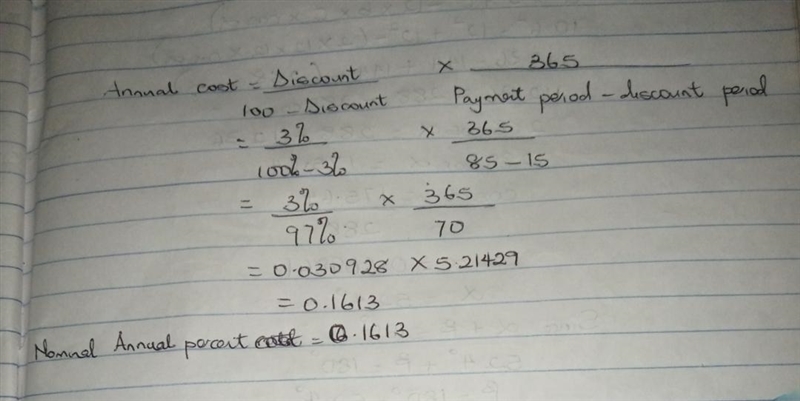 Annual cost = Discount / 100 - Discount × 365 / Payment period - discount period
= 3% / 100% - 3% × 365 / 85 - 15
= 3% / 97% × 365 / 70
= 0.030928 × 5.21429
= 0.1613
Nominal Annual percent cost = 0.1613